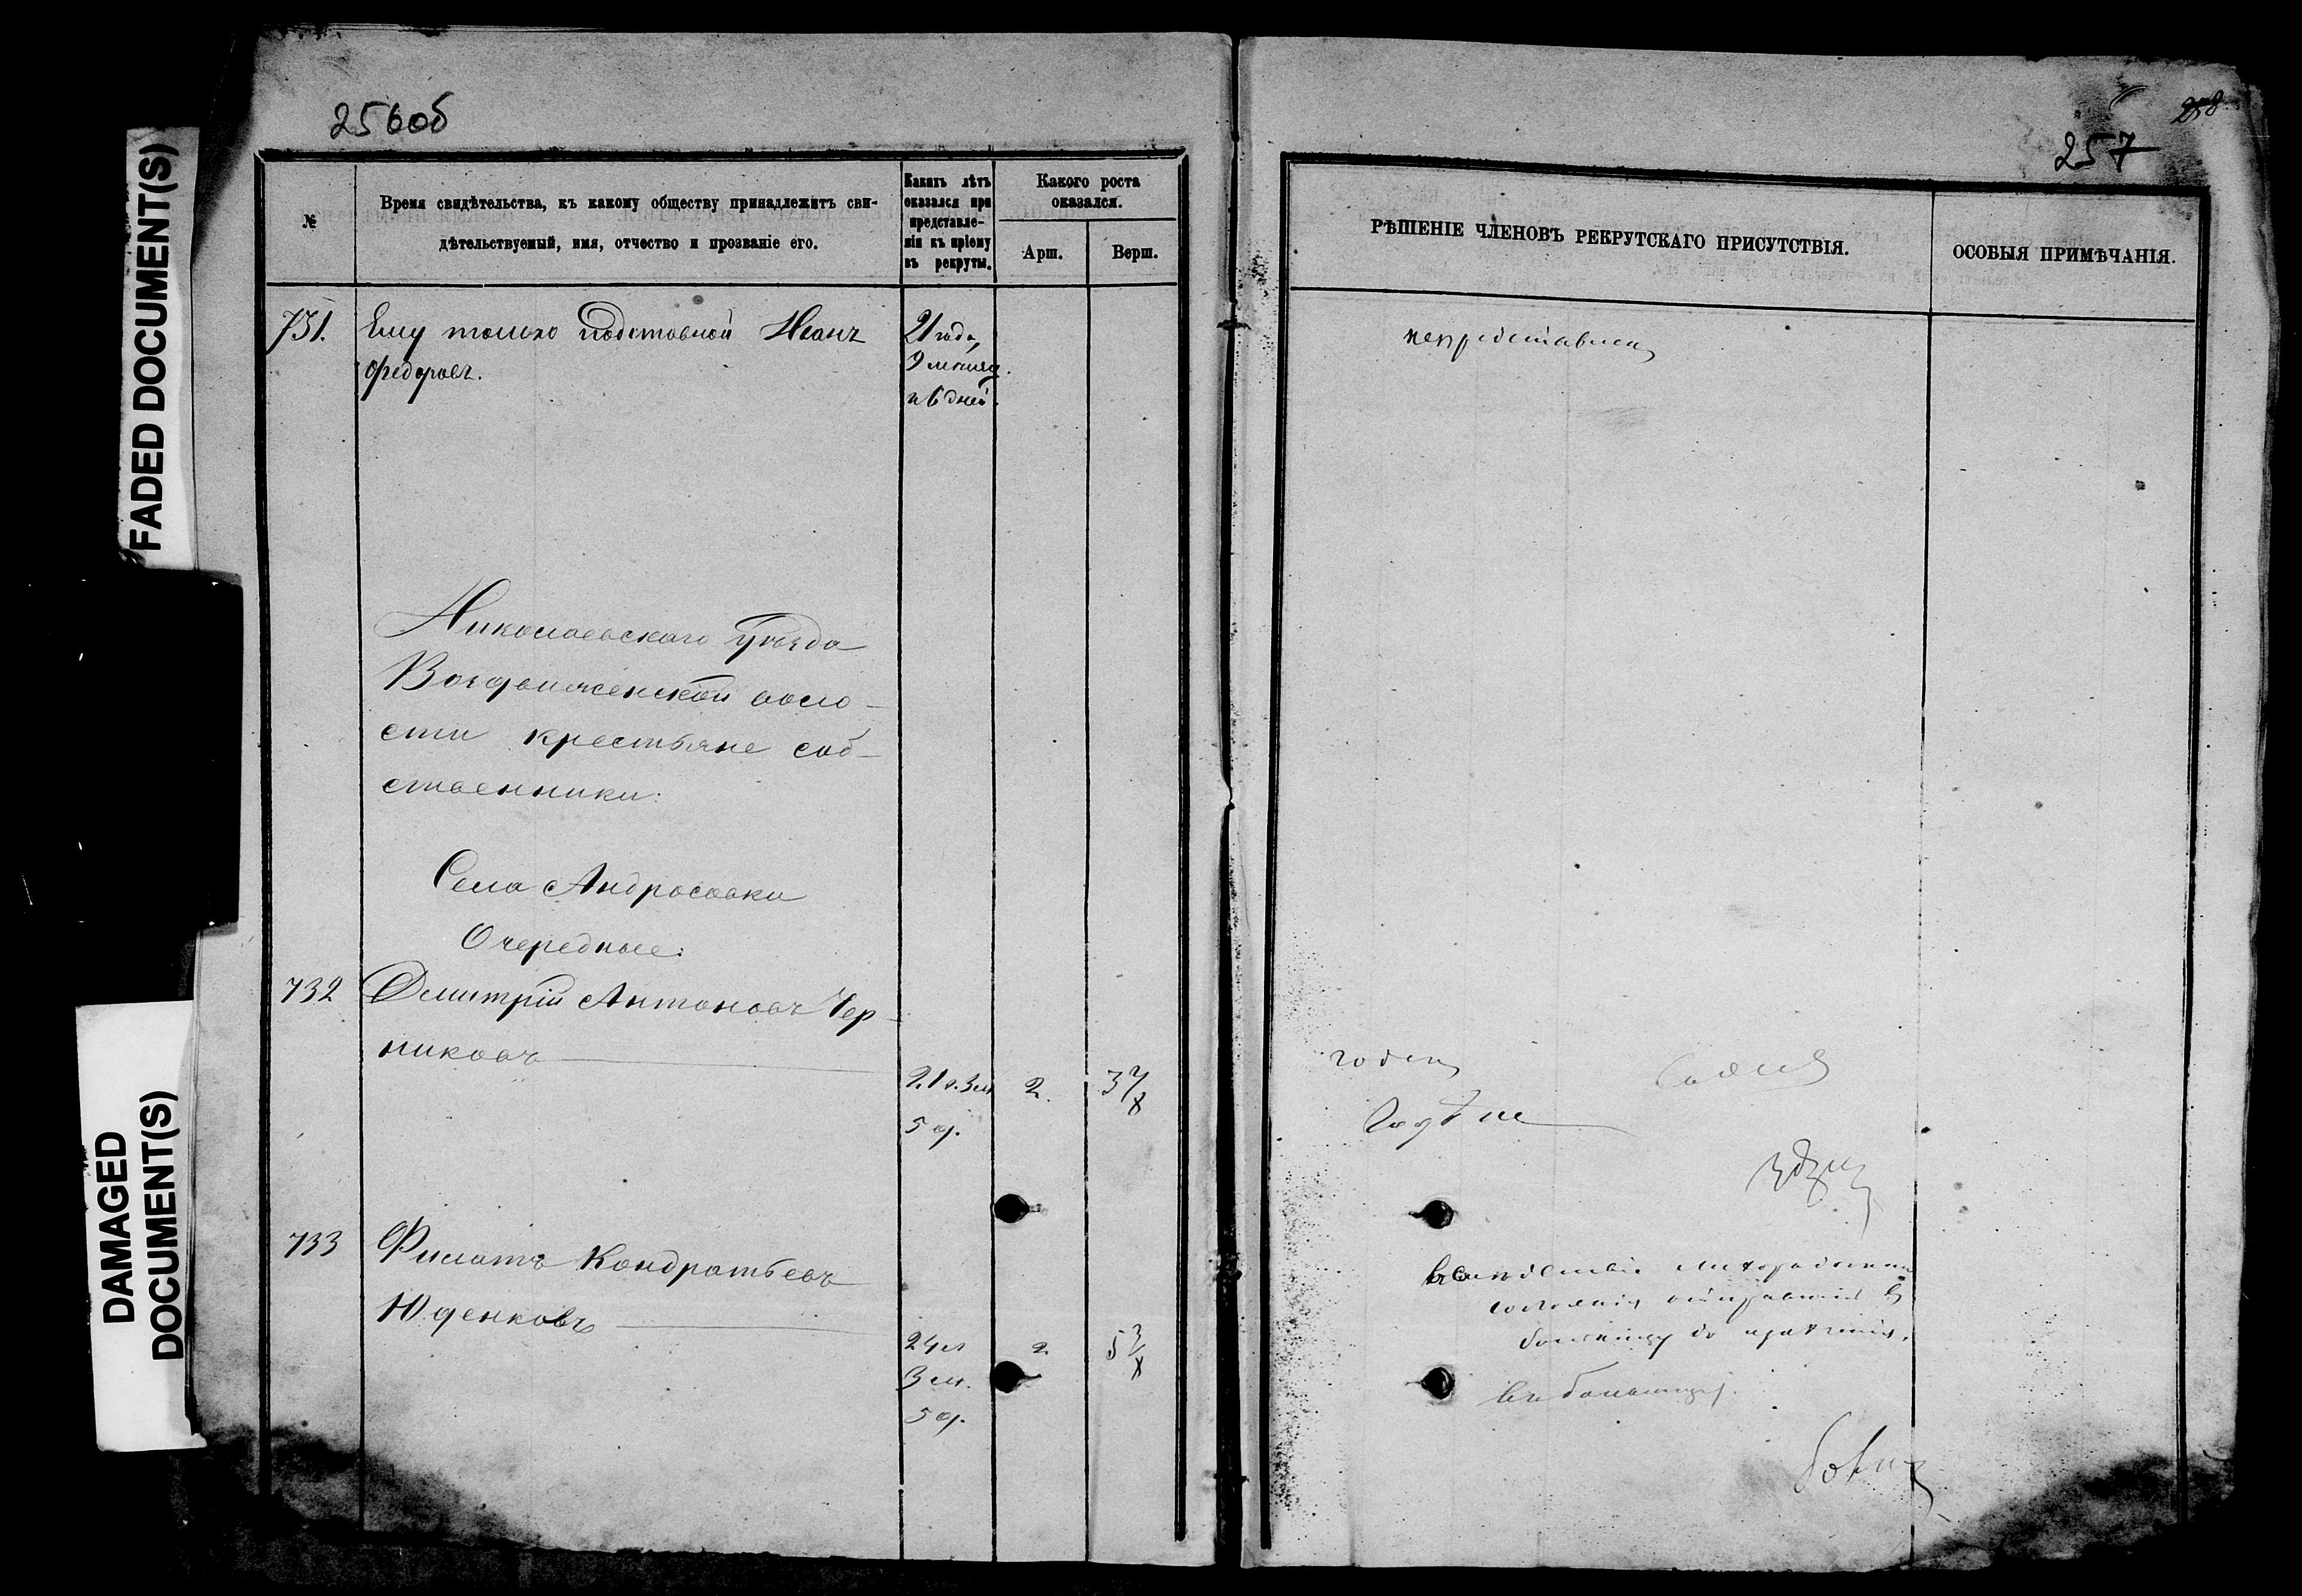 256об
258
257
FADED DOCUMENT(S)
DAMAGED
DOCUMENT(S)
№
Время свидѣтельства, къ какому обществу принадлежитъ сви-
дѣтельствуемый, имя, отчество и прозваніе его.
Какихъ лѣтъ
оказался при
представле-
ніи къ пріему
въ рекруты.
Какого роста
оказался.
Арш.
Верш.
РѢШЕНІЕ ЧЛЕНОВЪ РЕКРУТСКАГО ПРИСУТСТВІЯ.
ОСОБЫЯ ПРИМѢЧАНІЯ.
731. Ему только подставной Иванъ
Федоровъ.
21 года,
9 месяц.
и 6 дней.
непредставленъ
Николаевскаго Уѣзда
Воздвиженской воло-
сти крестьяне соб-
ственники:
Села Андросовки
Очередные:
732 Дмитрій Антоновъ Чер-
никовъ
21 г. 3 м.
5 д.
2. 3 7/8
годенъ
Годенъ
733 Филатъ Кондратьевъ
Юденковъ
24 л.
3 м.
5 д.
2 5 3/8
состоянія отправить въ
больницу до
въ больницу.